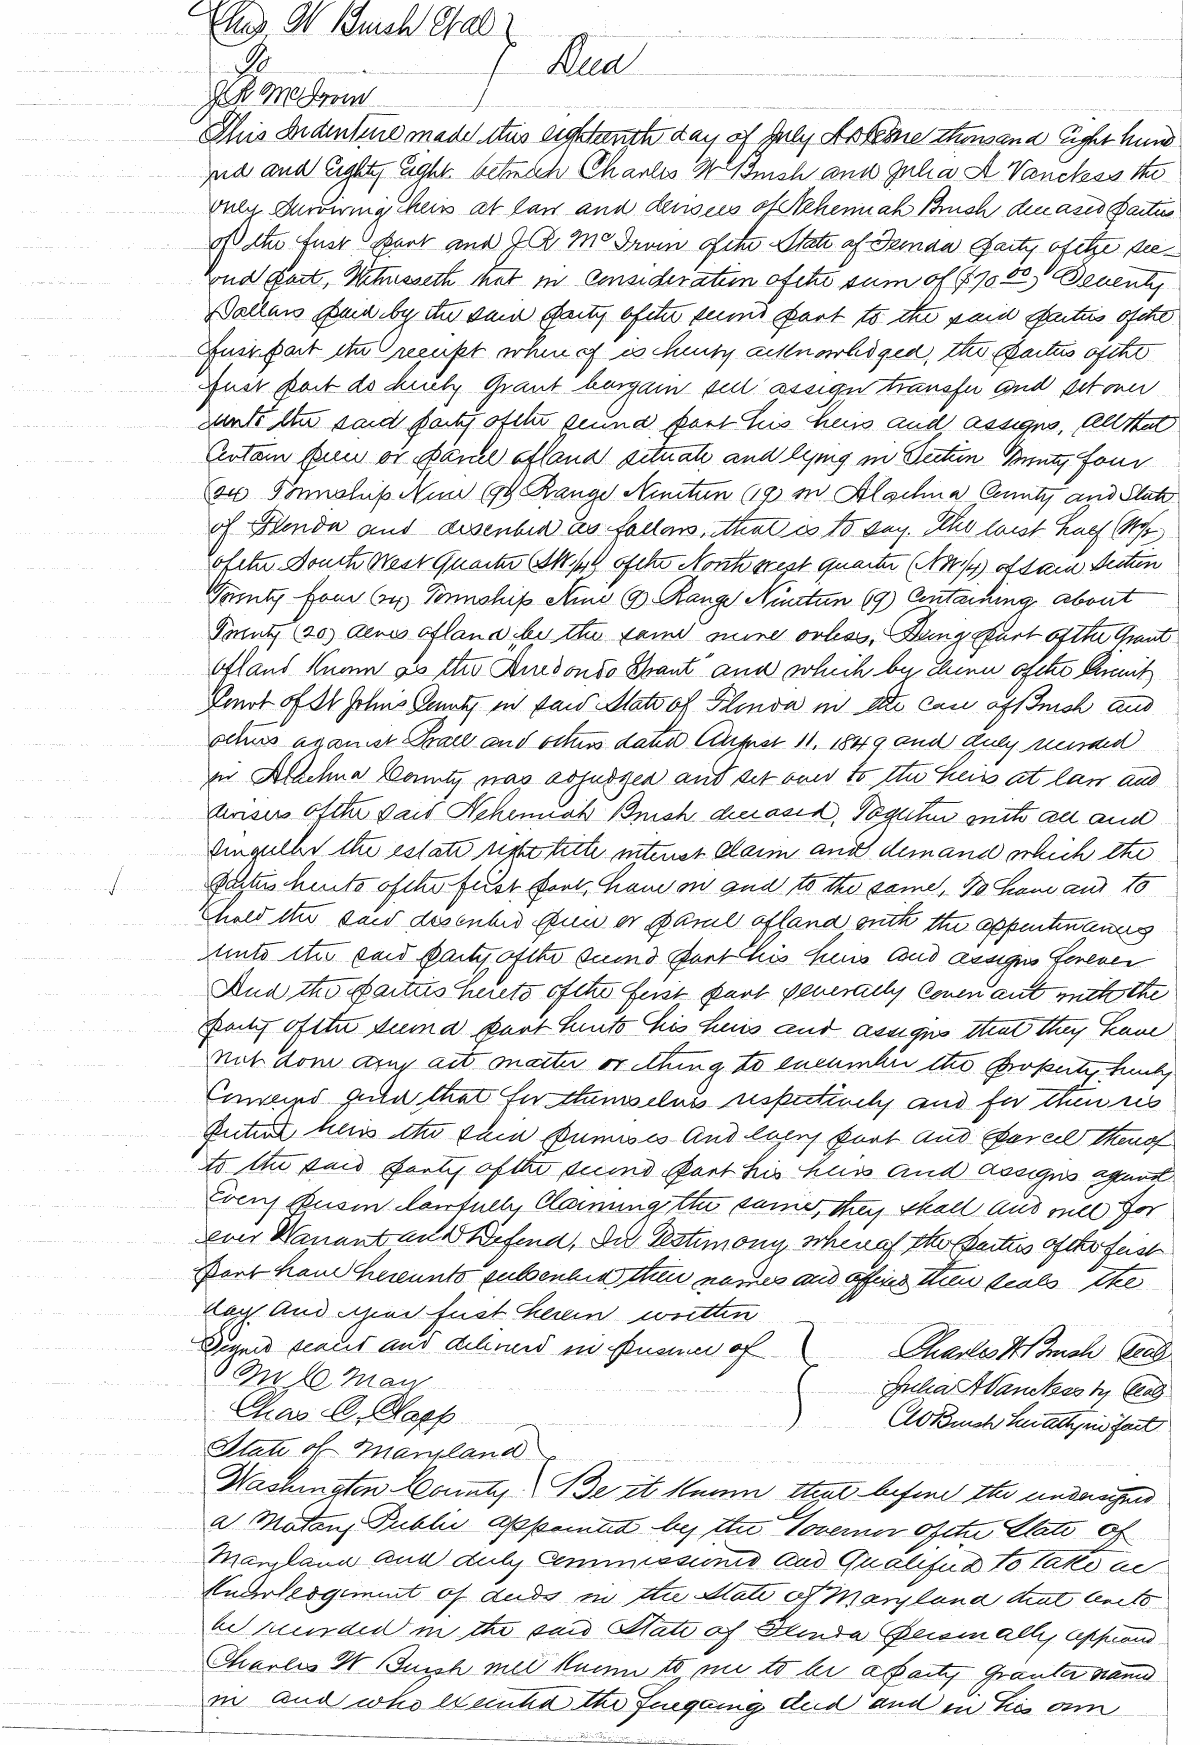 Chas W Brush Etal
To
Deed
J R McIrvin
This Indenture made this eighteenth day of July A.D. One thousand Eight hund
red and Eighty Eight. between Charles W Brush and Julia A Vanckess the
only Surviving heirs at law and devisees of Nehemiah Brush deceased parties
of the first part and J R McIrvin of the State of Florida party of the sec-
ond part, Witnesseth that in Consideration of the sum of ($70.00) Seventy
Dollars paid by the said party of the second part to the said parties of the
first part the receipt where of is hereby acknowledged, the parties of the
first part do hereby Grant bargain sell assign transfer and set over
unto the said party of the second part his heirs and assigns, All that
Certain piece or parcel of land situate and lying in Section Twenty four
(24) Township Nine (9) Range Nineteen (19) in Alachua County and State
of Florida and described as follows, that is to say. The west half (W½)
of the South West Quarter (SW.1/4) of the North west quarter (NW 1/4) of said Section
Twenty four (24) Township Nine (9) Range Nineteen (19) Containing about
Twenty (20) acres of land be the same more or less, Being part of the Grant
of land Known as the "Arredondo Grant" and which by decree of the Circuit
Court of St Johns County in said State of Florida in the case of Brush and
others against and others dated August 11, 1849 and duly recorded
in Alachua County was adjudged and set over to the heirs at law and
devisees of the said Nehemiah Brush deceased, Together with all and
singular the estate right title interest claim and demand which the
parties hereto of the first part, have in and to the same, To have and to
hold the said described piece or parcel of land with the appurtenances
unto the said party of the second part his heirs and assigns forever
And the parties hereto of the first part severally Covenant with the
party of the second part hereto his heirs and assigns that they have
not done any act matter or thing to encumber the property hereby
Conveyed and that for themselves respectively and for their res
pective heirs the said premises and every part and parcel thereof
to the said party of the second part his heirs and assigns against
Every person lawfully Claiming the same, they shall and will for
ever Warrant and Defend, In Testimony whereof the parties of the first
part have hereunto subscribed their names and affixed their seals the
day and year first herein written
Signed sealed and delivered in presence of
M C May
Chas C, Clapp
Charles W Brush (seal)
Julia A Vanckess by (seal)
CW Brush her atty in fact
State of Maryland
Washington County Be it Known that before the undersigned
a Notary Public appointed by the Governor of the State of
Maryland and duly Commissioned and Qualified to take ac
knowledgement of deeds in the State of Maryland that are to
be recorded in the said State of Florida personally appeared
Charles W Brush well Known to me to be a party grantor named
in and who executed the foregoing deed and in his own